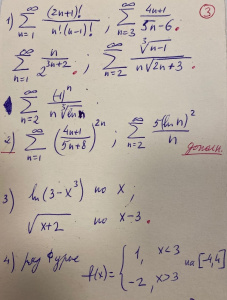 1) ∑_{n=1}^{∞} (2n+1)! / n!(n-1)! ; ∑_{n=3}^{∞} (4n+1) / (5n-6) . ③
∑_{n=1}^{∞} n / 2^{3n+2} ; ∑_{n=2}^{∞} ∛(n-1) / n√(2n+3) .
∑_{n=2}^{∞} (-1)^n / n ∛(ln n)
2) ∑_{n=1}^{∞} ((4n+1)/(5n+8))^{2n} ; ∑_{n=2}^{∞} 5(ln n)^2 / n
допол.
3) ln(3-x^3) по x ;
√(x+2) по x-3.
4) ряд Фурье
f(x) = { 1, x<3
-2, x>3 на [-4,4]